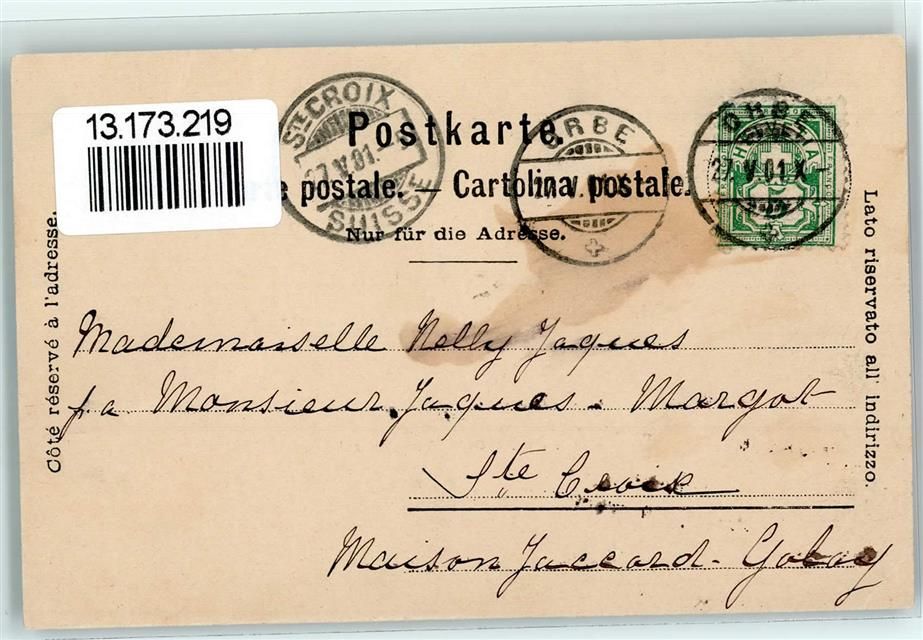 13.173.219
Ste CROIX
27.V.01.
SUISSE
Postkarte.
ORBE
27.V.01.X
ORBE
27.V.01.X-
HELVETIA
postale. — Cartolina postale.
Nur für die Adresse.
Côté réservé à l'adresse.
Lato riservato all' indirizzo.
Mademoiselle Nelly Jaques
p a Monsieur Jaques - Margot
Ste Croix
Maison Jaccard - Golay